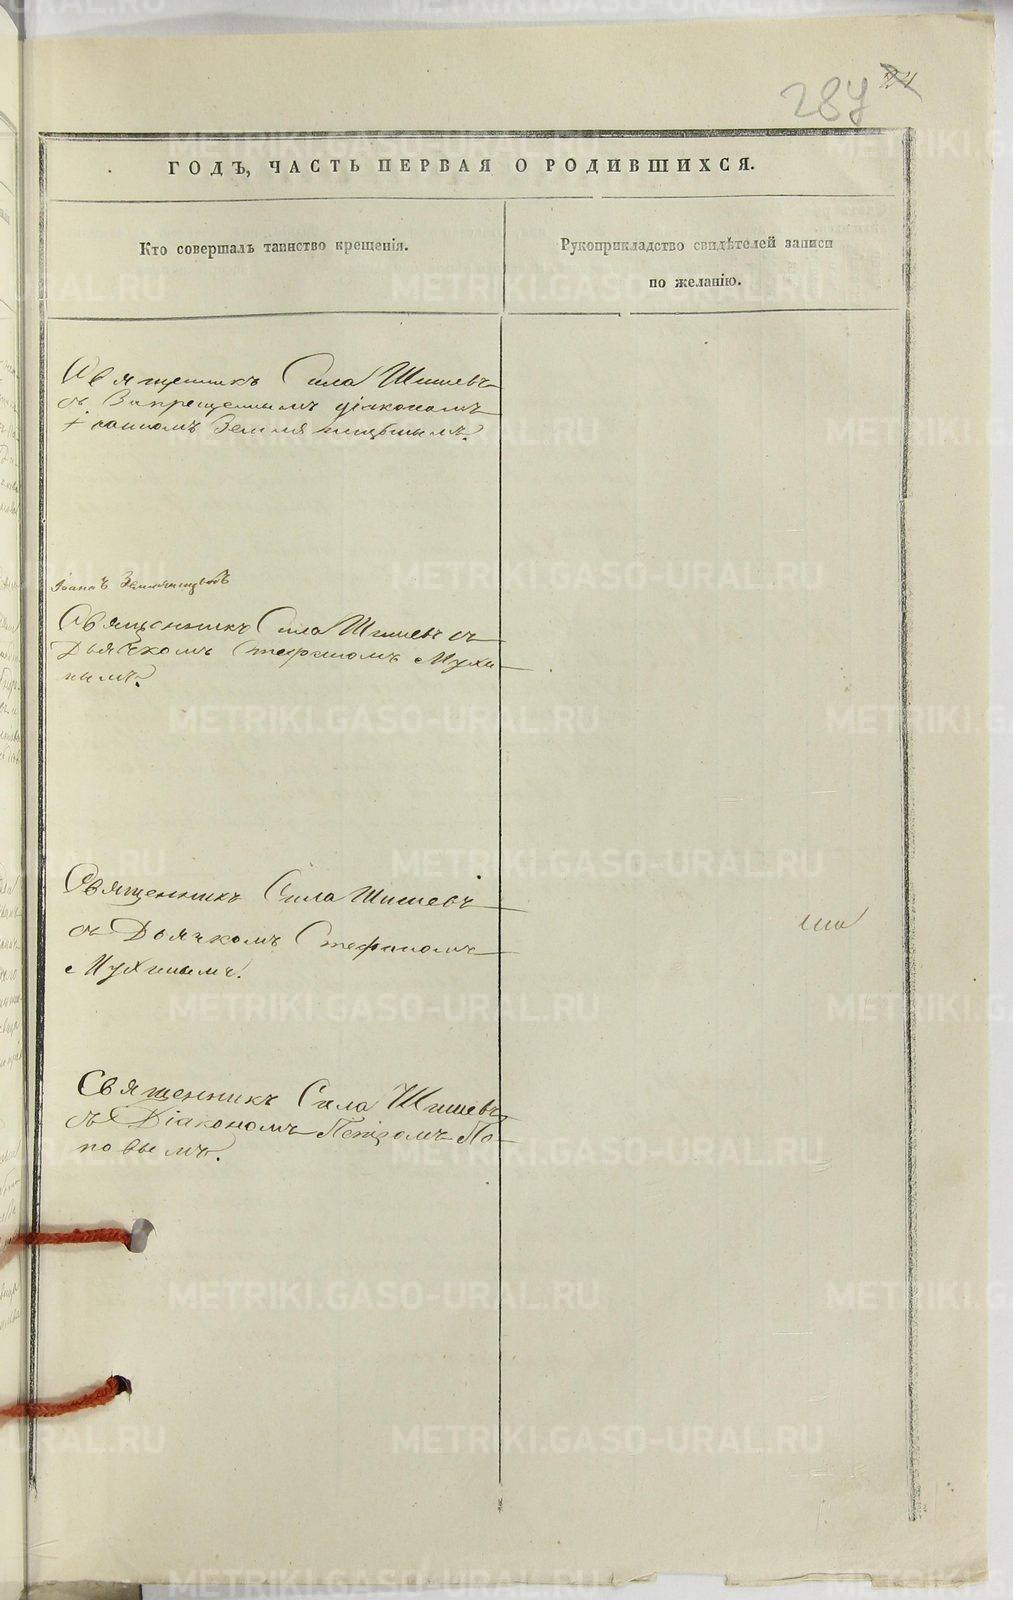 287 24
ГОДЪ, ЧАСТЬ ПЕРВАЯ О РОДИВШИХСЯ.
Кто совершалъ таинство крещенія.
Рукоприкладство свидѣтелей записи
по желанію.
Священникъ Сила Шишевъ
съ Запрещеннымъ діакономъ
Іоанъ Земляницынъ
Священникъ Сила Шишевъ съ
Дьячкомъ Стефаномъ Мухи-
нымъ.
Священникъ Сила Шишевъ
съ Дьячкомъ Стефаномъ
Мухинымъ.
Священникъ Сила Шишевъ
съ Діакономъ Петромъ По-
повымъ.
METRIKI.GASO-URAL.RU